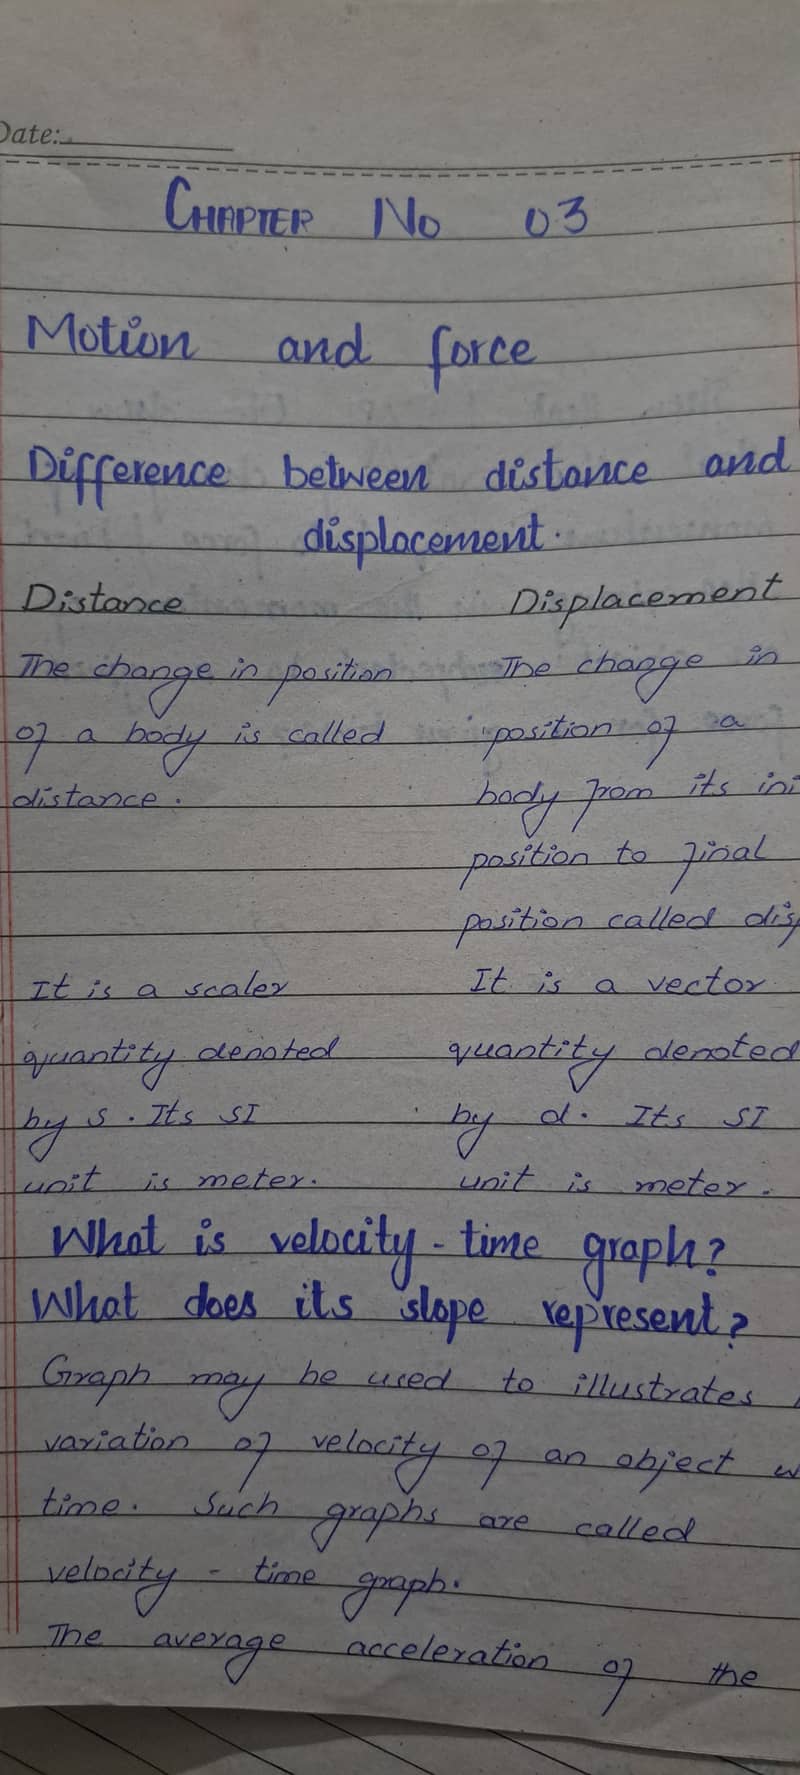 Date:
CHAPTER No 03
Motion and force
Difference between distance and
displacement.
Distance Displacement
The change in position The change in
of a body is called position of a
distance. body from its ini
position to final
position called dis
It is a scaler It is a vector
quantity denoted quantity denoted
by s. Its SI by d. Its SI
unit is meter. unit is meter.
What is velocity - time graph?
What does its slope represent?
Graph may be used to illustrates
variation of velocity of an object w
time. Such graphs are called
velocity - time graph.
The average acceleration of the